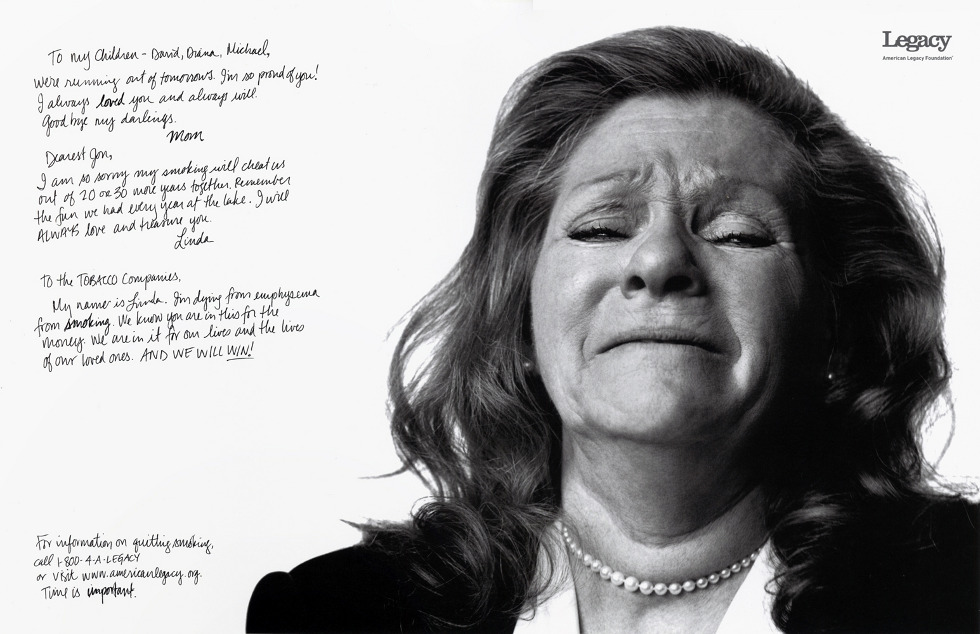 To my Children - David, Diana, Michael,
We're running out of tomorrows. I'm so proud of you!
I always loved you and always will.
Good bye my darlings.
Mom
Dearest Jon,
I am so sorry my smoking will cheat us
out of 20 or 30 more years together. Remember
the fun we had every year at the lake. I will
ALWAYS love and treasure you.
Linda
To the TOBACCO Companies,
My name is Linda. I'm dying from emphysema
from smoking. We know you are in this for the
money. We are in it for our lives and the lives
of our loved ones. AND WE WILL WIN!
For information on quitting smoking,
call 1-800-4-A-LEGACY
or visit www.americanlegacy.org.
Time is important.
Legacy
American Legacy Foundation®